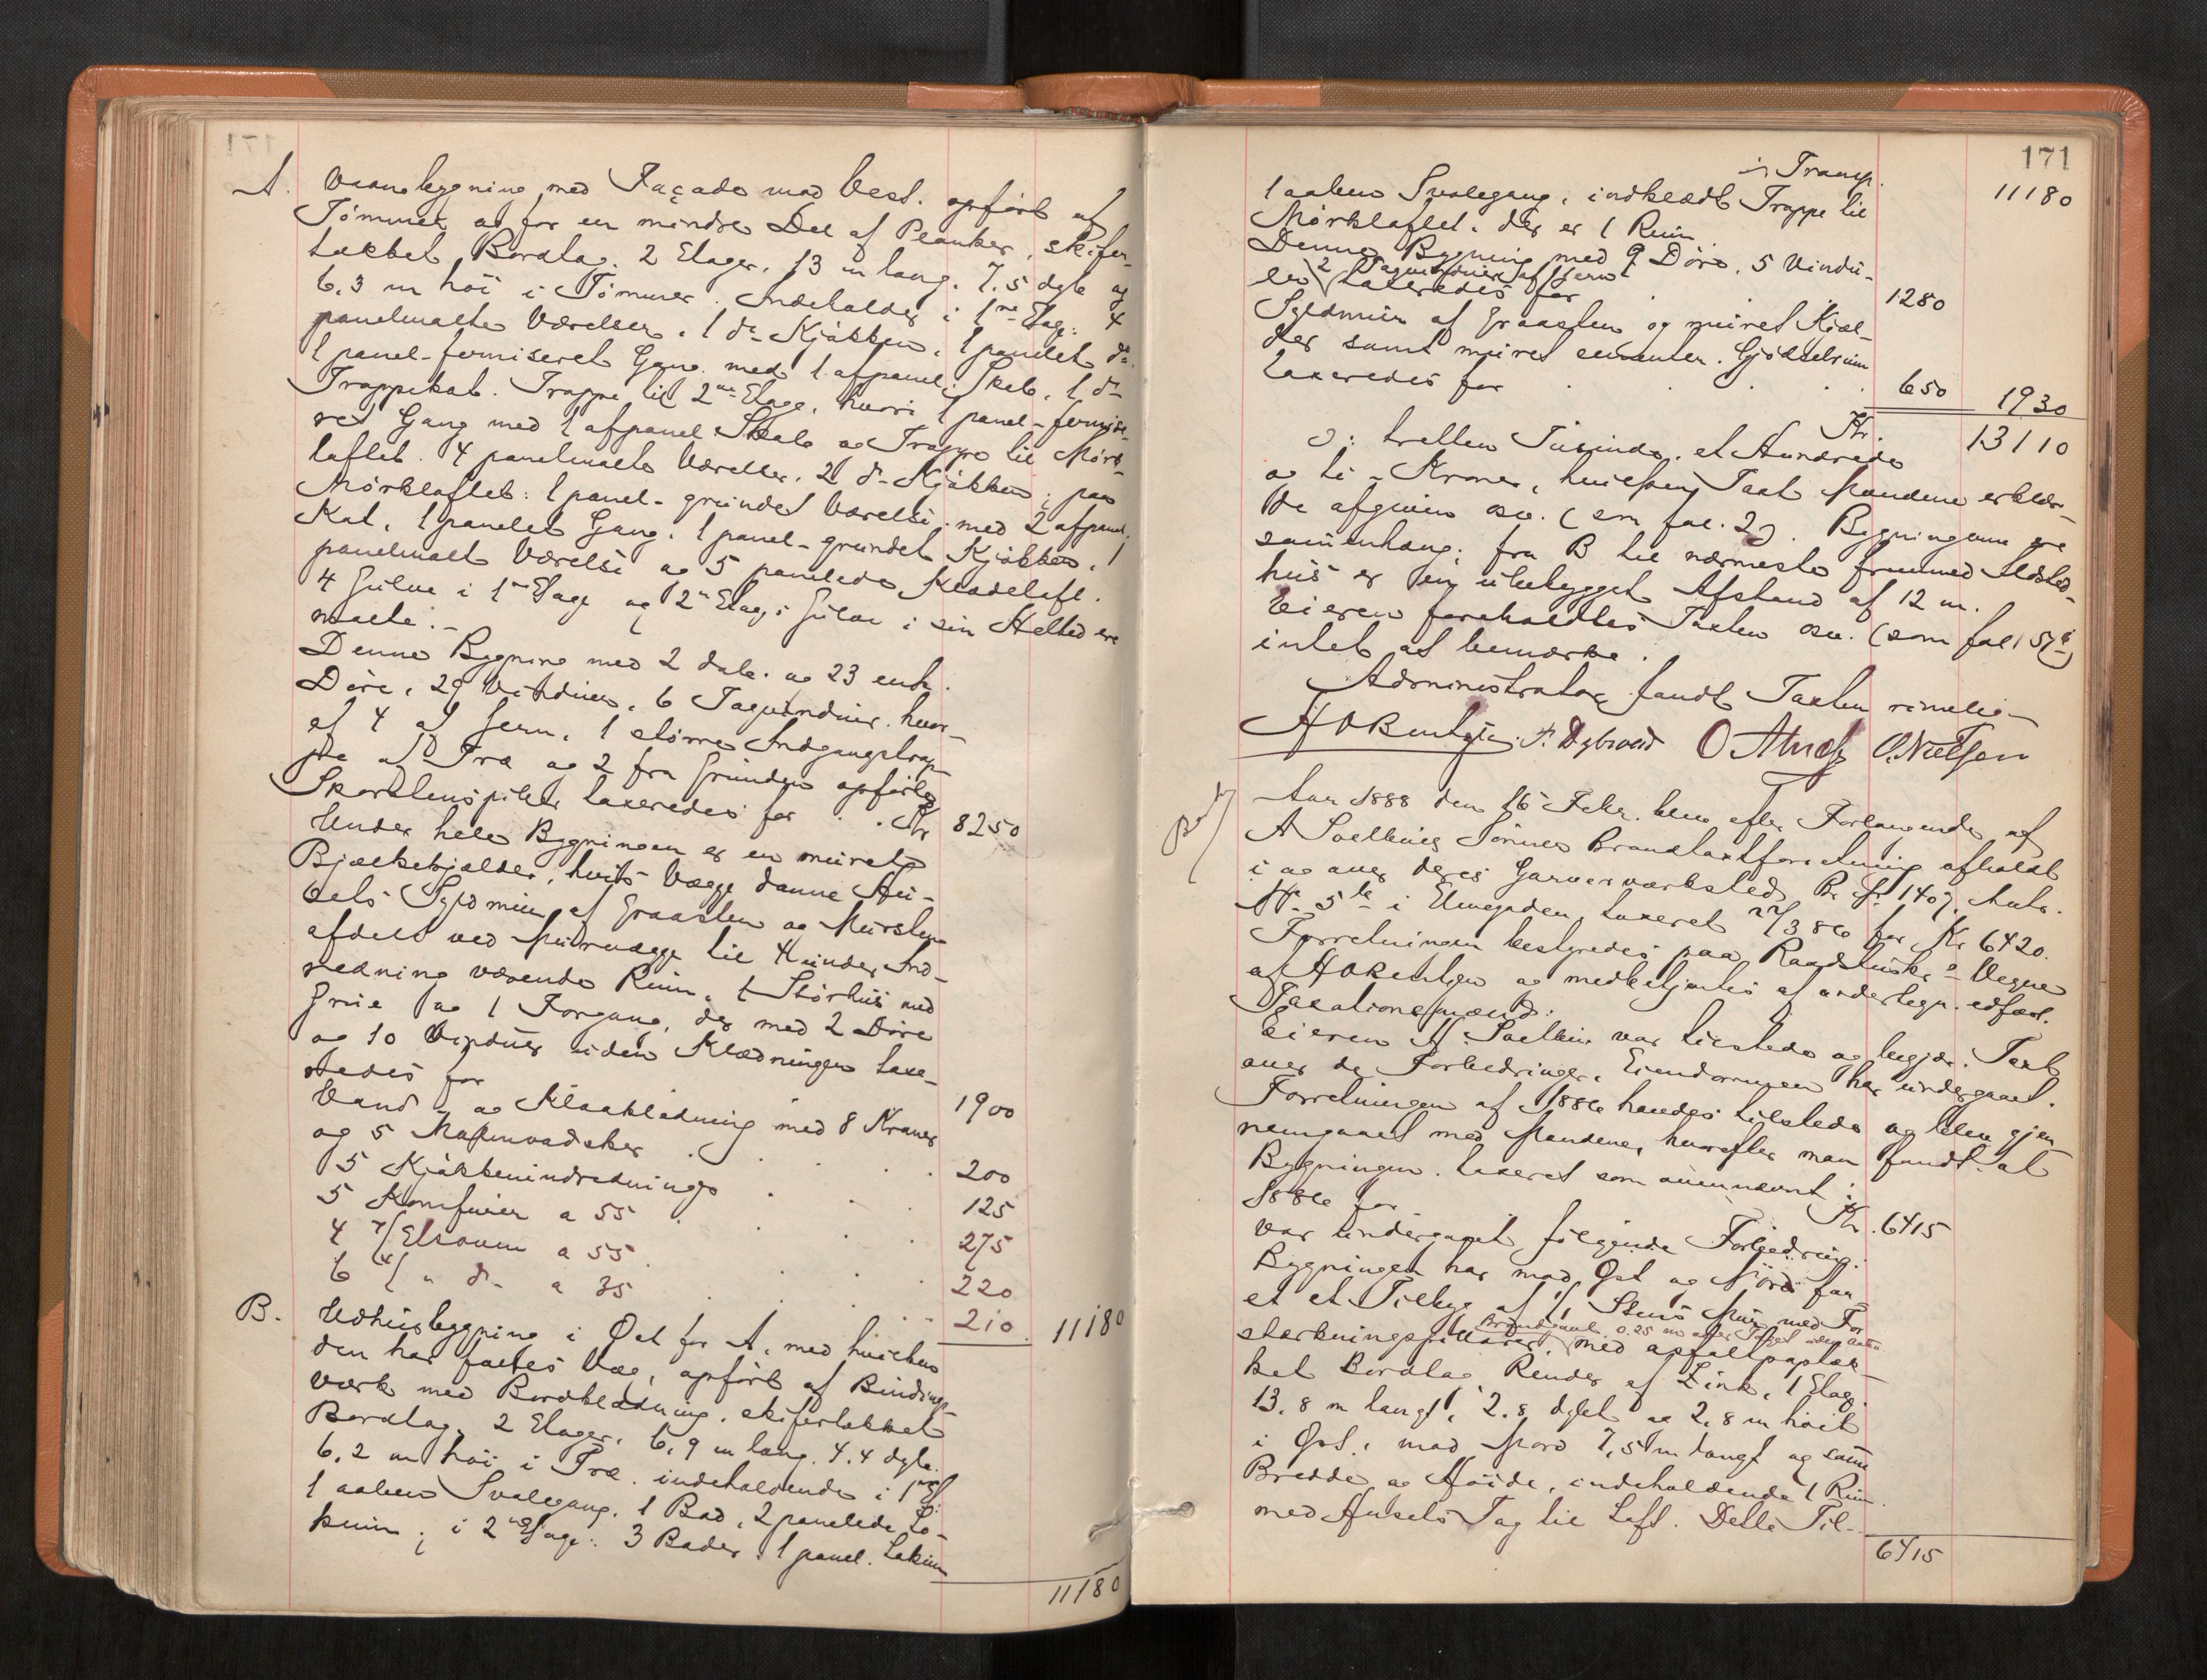 A. Vaaningbygning med Façade mod Vest. opført af
Tømmer og for en mindre Del af Planker, skifer-
takket Bordtag. 2 Etager, 13 m lang, 7.5 dyb og
6.3 m høi i Tømmer. Indeholder i 1ste Etage: 4
panelmalte Værelser, 1 do Kjøkken, 1 panelet do
1 panel-ferniseret Gang med 1 afpanel. Skab, 1 do
Trappekot. Trappe til 2den Etage, hvori 1 panel-fernise-
ret Gang med 1 afpanel Skab og Trappe til Mørk-
loftet. 4 panelmalte Værelser, 2 do Kjøkken; paa
Mørkloftet: 1 panel-grundet Værelse med 2 afpanel.
Kot, 1 panelet Gang, 1 panel-grundet Kjøkken, 1
panelmalt Værelse og 5 panelede Klædeloft.
4 Gulve i 1ste Etage og 2den Etages Gulve i sin Helhed ere
malte.-
Denne Bygning med 2 dob. og 23 enk.
Døre, 29 Vinduer, 6 Tagvinduer, hvor-
af 4 af Jern, 1 større Indgangstrap-
pe af Træ og 2 fra Grunden opførte
Skorstenspiber taxeredes for . . Kr 8250
Under hele Bygningen er en muret
Bjælkekjælder, hvis Vægge danne Hu-
sets Syldmur af Graasten og Mursten
afdelt ved Murvægge til 4 under Ind-
redning værende Rum, 1 Størhus med
Grue og 1 Forgang, der med 2 Døre
og 10 Vinduer uden Klædningen taxe-
redes for 1900
Vand- og Kloakledning med 8 Kraner
og 5 Matervadsker 200
5 Kjøkkenindredninger 125
5 Komfurer a 55 275
4 4/Etsovne a 55 220
6 4/ " do a 35 210 11180
B. Udhusbygning i Øst for A, med hvilken
den har fælles Væg, opført af Bindings-
værk med Bordklædning, skifertakket
Bordtag, 2 Etager, 6,9 m lang, 4.4 dyb.
6.2 m høi i Træ. indeholdende i 1ste Et.
1 aaben Svalegang, 1 Bod, 2 panelede Lo-
kum; i 2den Etage: 3 Boder, 1 panel. Lokum
11180
171
Transp. 11180
1 aaben Svalegang, indklædt Trappe til
Mørkloftet. der er 1 Rum
Denne Bygning med 9 Døre, 5 Vindu-
2 Tagvinduer af Jern
er taxeredes for 1280
Syldmur af Graasten og muret Kjæl-
der samt muret cementer. Gjødselrum
taxeredes for 650 1930
Kr. 13110
ɔ: tretten Tusinde, et Hundrede
og ti - Kroner, hvilken Taxt Mændene erklær-
de afgiven osv. (som fol. 2). Bygningerne ere
sammenhæng. fra B til nærmeste fremmed Ildsted-
hus er en ubebygget Afstand af 12 m.
Eieren foreholdtes Taxten osv. (som fol. 57)
intet at bemærke.
Administrator fandt Taxten rimelig
A O Bentzen. P. Dybvad O Alnæs O. Nielsen
Aar 1888 den 16 Febr. blev efter Forlangende af
A Soelbergs Sønner Brandtaxtforretning afholdt
i og over deres Garverværksted Br. fr. 1407, Matr.
No 5 b i Elvegaden, taxeret 27/3 86 for Kr 6420.
Forretningen bestyredes paa Raadstuskr. Vegne
af A O Bentzen og medbetjentes af undertegn. edfæst.
Taxationsmænd:
Eieren M. Soelberg var tilstede og begjær. Taxt
over de Forbedringer, Eiendommen har undergaaet.
Forretningen af 1886 havdes tilstede og blev gjen-
nemgaaet med Mændene, hvorefter man fandt at
Bygningen. taxeret som ovennævnt i
1886 for Kr. 6415
var undergaaet følgende Forbedring:
Bygningen har mod Øst og Nord faa-
et et Tilbyg af 1/1 Stens Mur med For-
Brandgavl 0.25 m over Taget uden
stærkningspillarer, med asfaltpaptæk-
ket Bordtag Render af Zink, 1 Etage,
13.8 m langt, 2.8 dybt og 2,8 m høit
i Øst, mod Nord 7,5 m langt og samme
Bredde og Høide, indeholdende 1 Rum
med Husets Tag til Loft. Dette Til-
6415